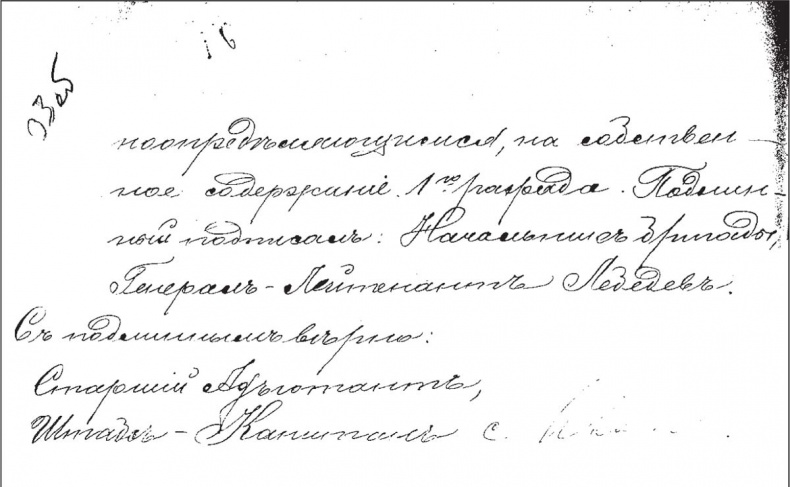 16
33об
ноопредѣляющимися, на собствен-
ное содержаніе 1го разряда. Подлин-
ный подписалъ: Начальникъ бригады,
Генералъ-Лейтенантъ Лебедевъ.
Съ подлиннымъ вѣрно:
Старшій Адъютантъ,
Штабсъ-Капитанъ